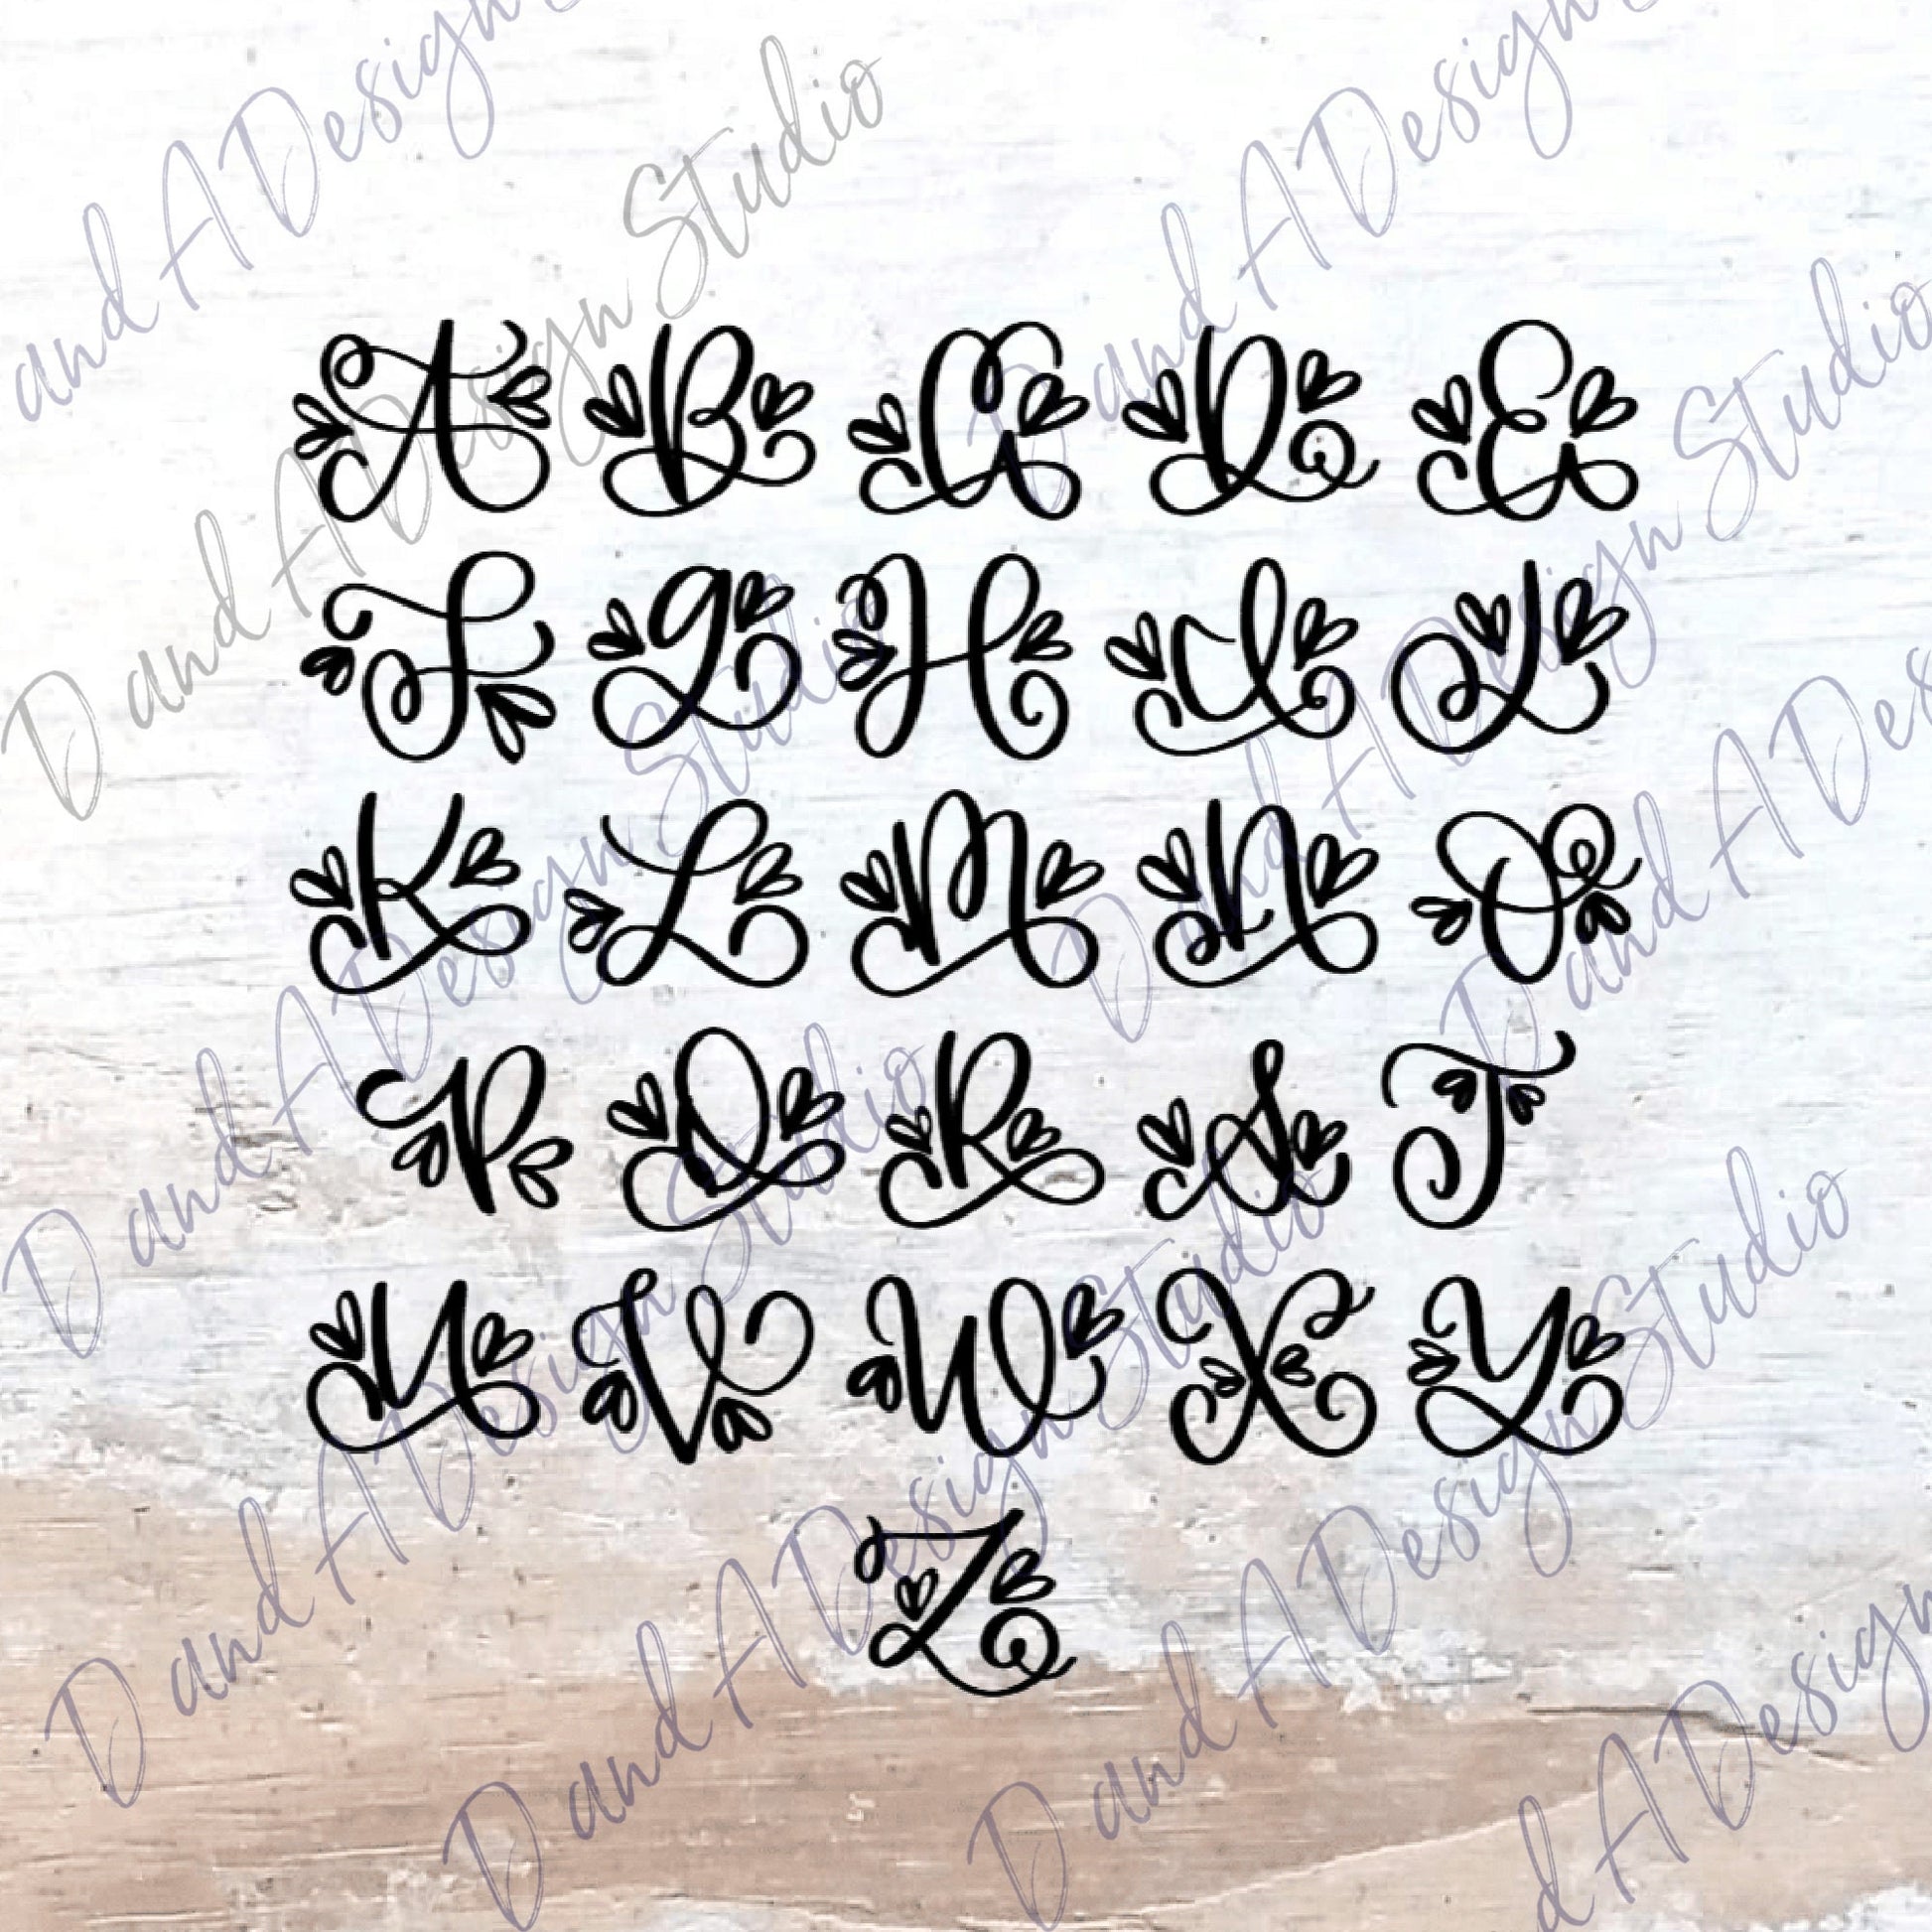 A B C D E
F G H I J
K L M N O
P Q R S T
U V W X Y
Z
and A Design
D and A Design Studio
D and A Design Studio
D and A Design Studio
D and A Design Studio
D and A Design Studio
D and A Design Studio
D and A Design Studio
D and A Design Studio
D and A Design Studio
d A Design